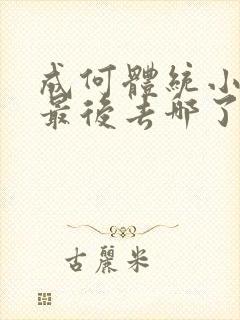 成何體統小
最後去哪了
古麗米